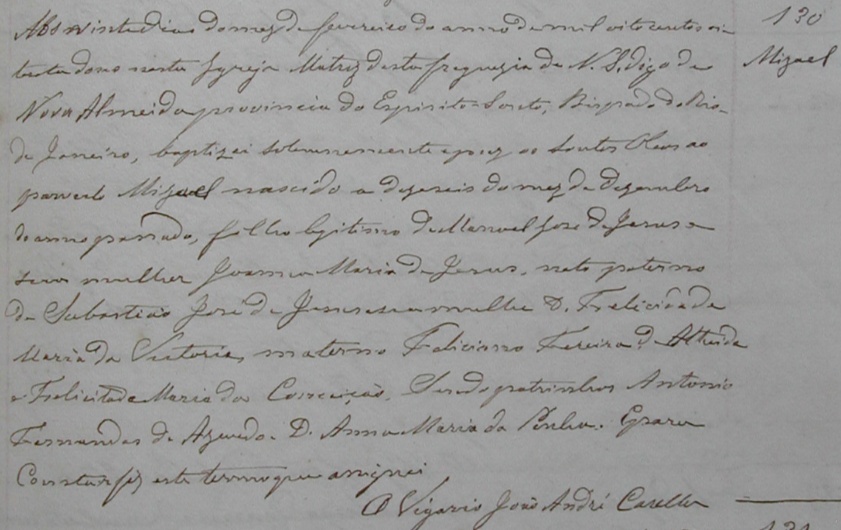 130
Migael
Aos vinte dias do mez de fevereiro do anno de mil oito centos oi-
tenta do no nesta Igreja Matriz desta freguezia de N. S. digo de
Nova Almeida provincia do Espirito Santo, Bispado do Rio
de Janeiro, baptizei solemnemente e puz os Santos Oleos ao
parvulo Migael nascido a dezeseis do mez de dezembro
do anno passado, filho legitimo de Manoel José de Jesus e
sua mulher Joanna Maria de Jesus, neto paterno
de Sebastião José de Jesus e sua mulher D. Felicidade
Maria da Victoria, materno Feliciano Fereira d'Almeida
e Felicidade Maria da Conceição. Sendo padrinhos Antonio
Fernandes de Azevedo. D. Anna Maria da Penha. E para
Constar fiz este termo que assignei
O Vigario João André Casella
131